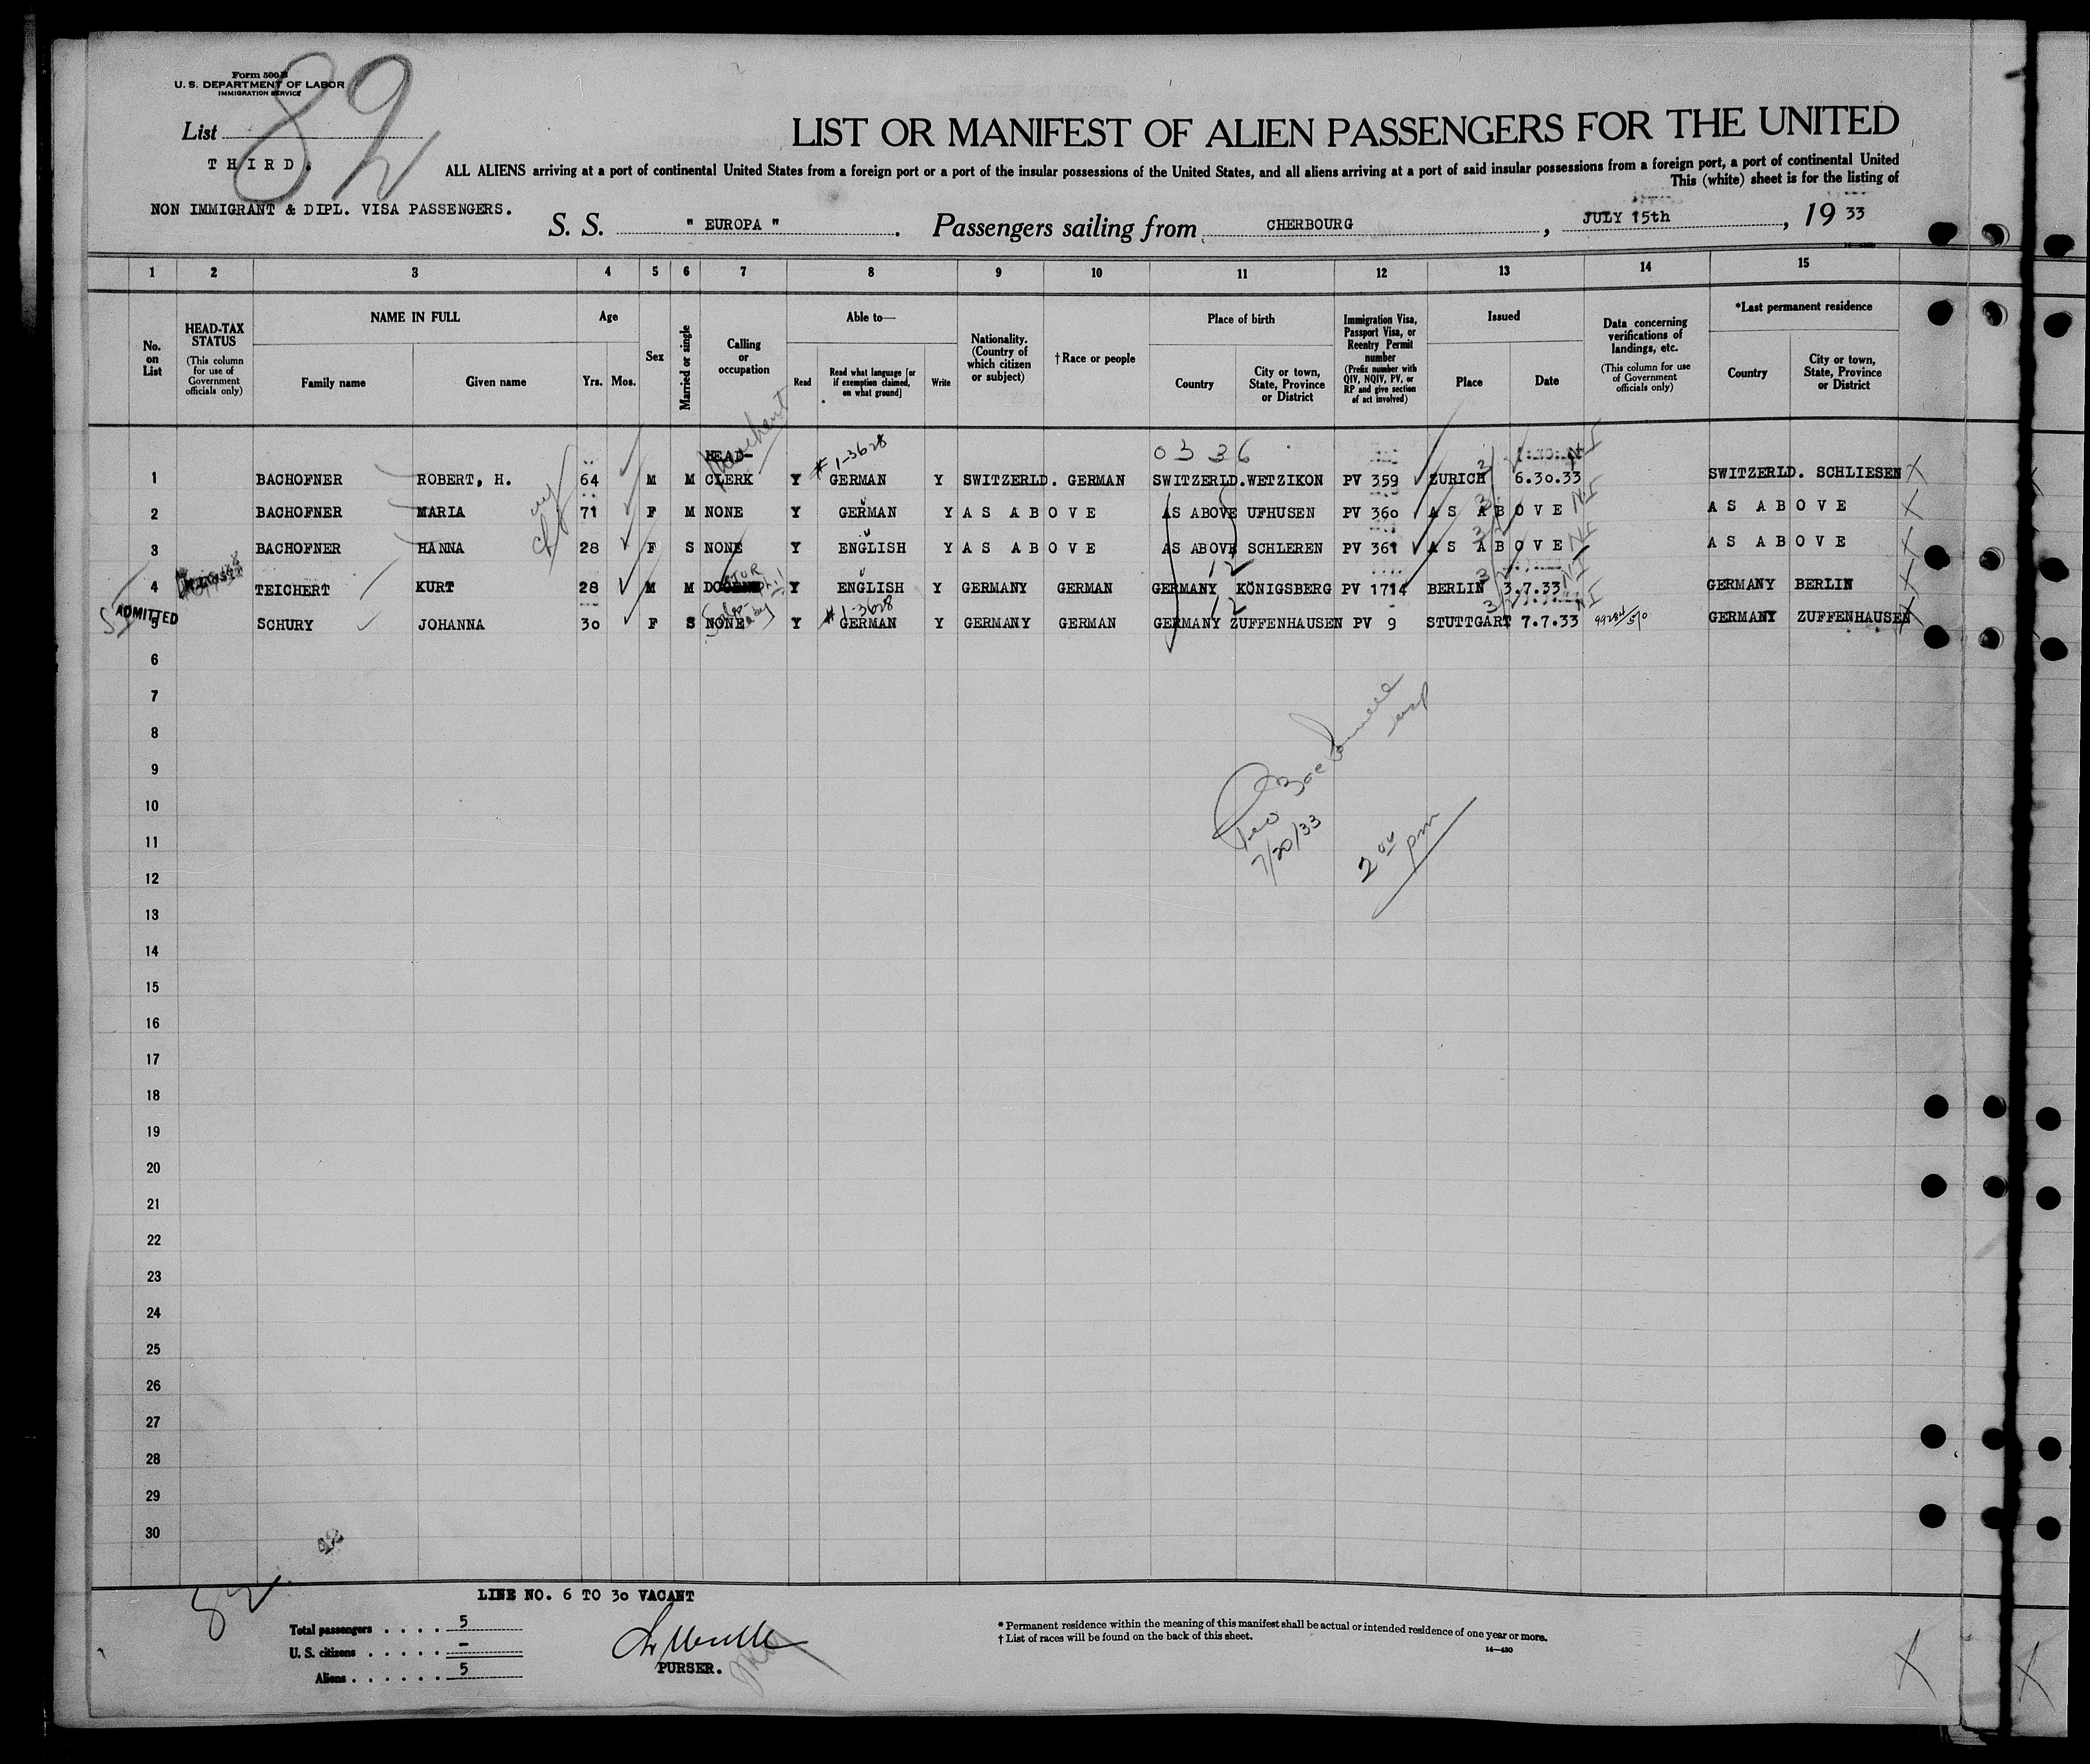 Form 500 B
U. S. DEPARTMENT OF LABOR
IMMIGRATION SERVICE
List 82
THIRD.
NON IMMIGRANT & DIPL. VISA PASSENGERS.
LIST OR MANIFEST OF ALIEN PASSENGERS FOR THE UNITED
ALL ALIENS arriving at a port of continental United States from a foreign port or a port of the insular possessions of the United States, and all aliens arriving at a port of said insular possessions from a foreign port, a port of continental United
This (white) sheet is for the listing of
S. S. " EUROPA ". Passengers sailing from CHERBOURG, JULY 15th, 19 33
1 2 3 4 5 6 7 8 9 10 11 12 13 14 15
No. on List
HEAD-TAX STATUS
(This column for use of Government officials only)
NAME IN FULL
Family name
Given name
Age
Yrs. Mos.
Sex
Married or single
Calling or occupation
Able to—
Read
Read what language [or if exemption claimed, on what ground]
Write
Nationality. (Country of which citizen or subject)
†Race or people
Place of birth
Country
City or town, State, Province or District
Immigration Visa, Passport Visa, or Reentry Permit number
(Prefix number with QIV, NQIV, PV, or RP and give section of act involved)
Issued
Place
Date
Data concerning verifications of landings, etc.
(This column for use of Government officials only)
*Last permanent residence
Country
City or town, State, Province or District
Merchant
# 1-3628
0 3 3 6
1 BACHOFNER ROBERT, H. 64 M M HEAD-CLERK Y GERMAN Y SWITZERLD. GERMAN SWITZERLD. WETZIKON PV 359 ZURICH 6.30.33 NI SWITZERLD. SCHLIESEN X
2 BACHOFNER MARIA 71 F M NONE Y GERMAN Y AS ABOVE AS ABOVE UFHUSEN PV 360 AS ABOVE NI AS ABOVE X
3 BACHOFNER HANNA 28 F S NONE Y ENGLISH Y AS ABOVE AS ABOVE SCHLEREN PV 361 AS ABOVE NI AS ABOVE X
4 TEICHERT KURT 28 M M DOCTOR Y ENGLISH Y GERMANY GERMAN GERMANY KÖNIGSBERG PV 1714 BERLIN 3.7.33 NI GERMANY BERLIN X
# 1-3628
ADMITTED
5 SCHURY JOHANNA 30 F S NONE Y GERMAN Y GERMANY GERMAN GERMANY ZUFFENHAUSEN PV 9 STUTTGART 7.7.33 NI GERMANY ZUFFENHAUSEN X
6
7
8
9
10
11
12
13
14
15
16
17
18
19
20
21
22
23
24
25
26
27
28
29
30
7/20/33
2 00 pm
82
LINE NO. 6 TO 30 VACANT
Total passengers . . . . 5
U. S. citizens . . . . . –
Aliens . . . . . . 5
PURSER.
* Permanent residence within the meaning of this manifest shall be actual or intended residence of one year or more.
† List of races will be found on the back of this sheet.
14—430
X
X